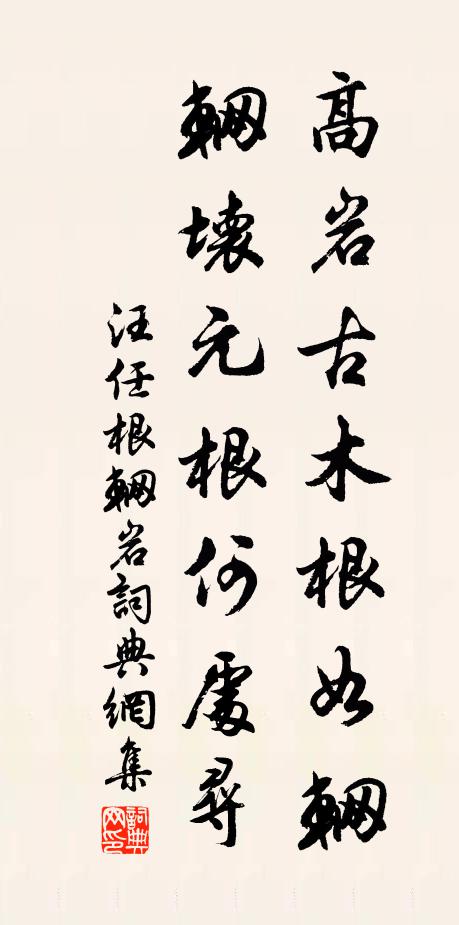 高岩古木根如輞
輞壞元根何處尋
汪任根輞岩詞典網集
詞典网印